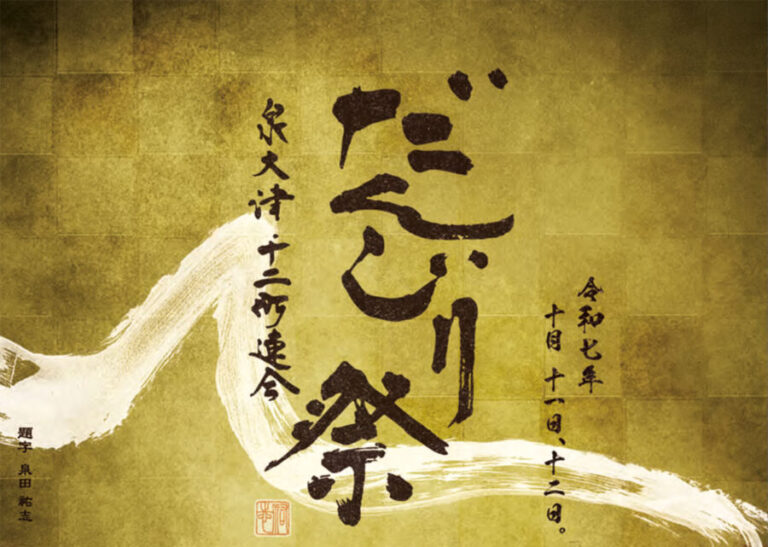 令和七年
十月十一日、十二日。
だんじり祭
泉大津十二町連合
題字 泉田 祐志